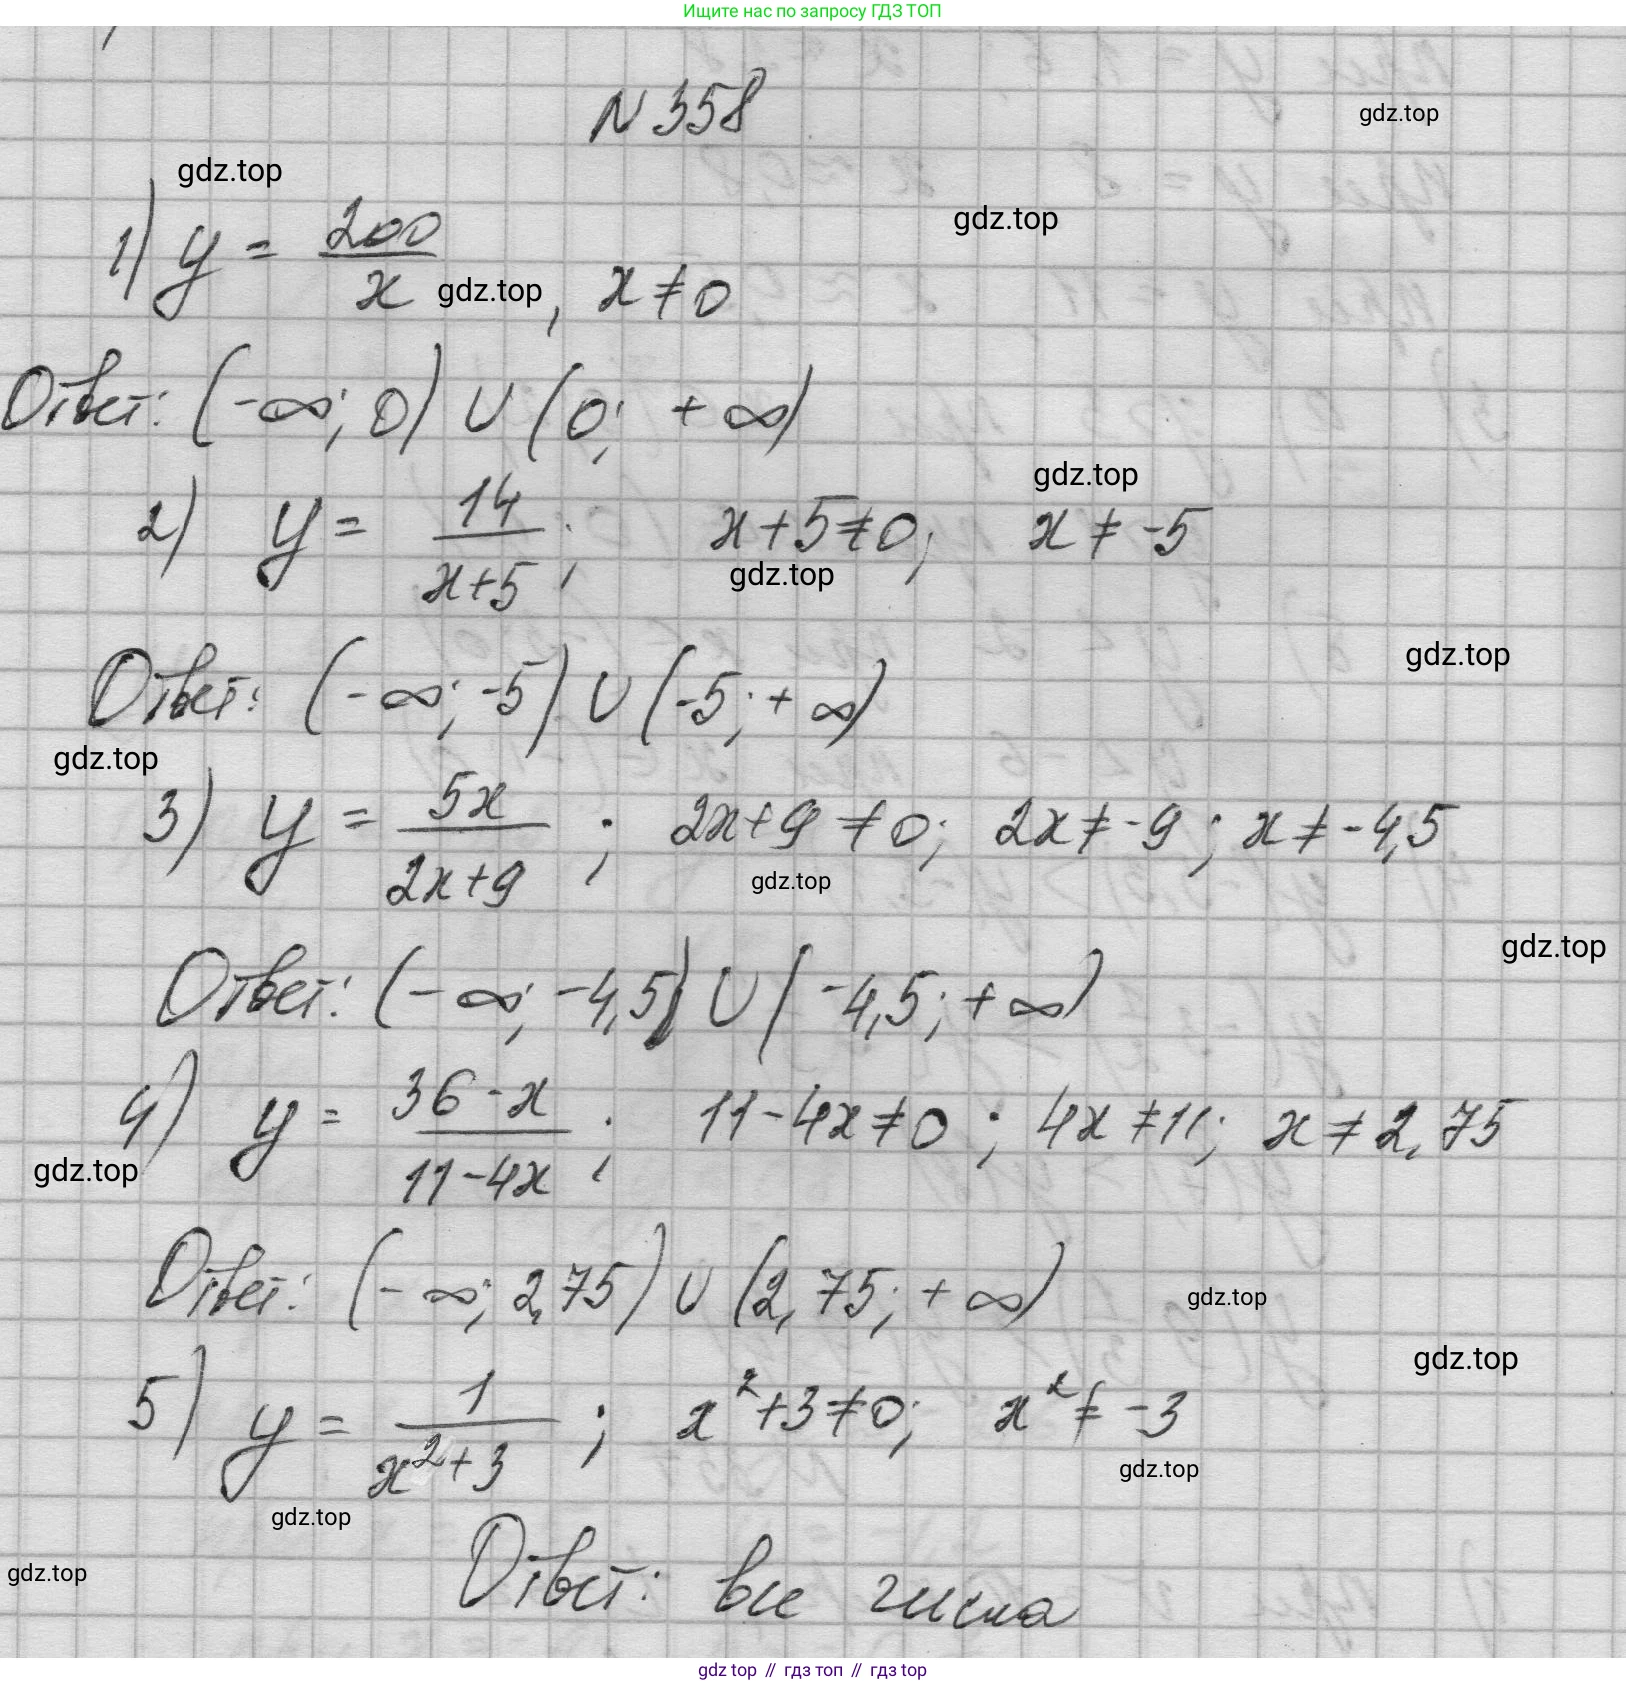 Ищите нас по запросу ГДЗ ТОП
N 358
gdz.top
gdz.top
gdz.top
1) y = 200/x, x ≠ 0
gdz.top
Ответ: (-∞; 0) ∪ (0; +∞)
gdz.top
2) y = 14/(x+5); x+5≠0; x ≠ -5
gdz.top
gdz.top
Ответ: (-∞; -5) ∪ (-5; +∞)
gdz.top
3) y = 5x/(2x+9); 2x+9 ≠ 0; 2x ≠ -9; x ≠ -4,5
gdz.top
gdz.top
Ответ: (-∞; -4,5) ∪ (-4,5; +∞)
4) y = (36-x)/(11-4x); 11-4x≠0; 4x ≠ 11; x ≠ 2,75
gdz.top
Ответ: (-∞; 2,75) ∪ (2,75; +∞)
gdz.top
gdz.top
5) y = 1/(x²+3); x²+3≠0; x² ≠ -3
gdz.top
gdz.top
gdz.top
Ответ: все числа
gdz top // гдз топ // гдз top